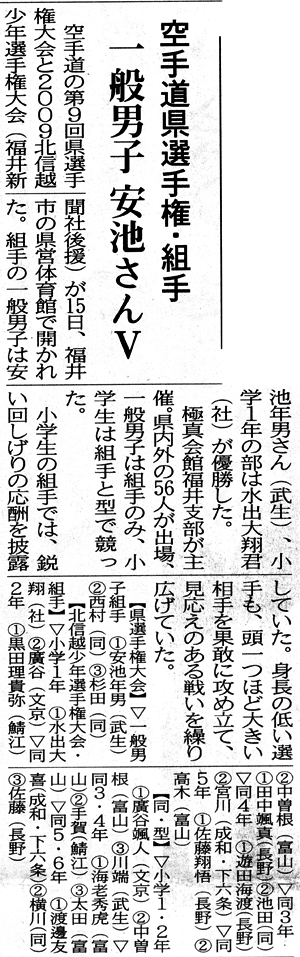 空手道県選手権・組手
一般男子 安池さんV
空手道の第9回県選手
権大会と2009北信越
少年選手権大会（福井新
聞社後援）が15日、福井
市の県営体育館で開かれ
た。組手の一般男子は安
池年男さん（武生）、小
学1年の部は水出大翔君
（社）が優勝した。
極真会館福井支部が主
催。県内外の56人が出場、
一般男子は組手のみ、小
学生は組手と型で競っ
た。
小学生の組手では、鋭
い回しげりの応酬を披露
していた。身長の低い選
手も、頭一つほど大きい
相手を果敢に攻め立て、
見応えのある戦いを繰り
広げていた。
【県選手権大会】▽一般男
子組手 ①安池年男（武生）
②西村（同）③杉田（同）
【北信越少年選手権大会・
組手】▽小学1年 ①水出大
翔（社）②廣谷（文京）▽同
2年 ①黒田理貴弥（鯖江）
②中曽根（富山）▽同3年
①田中颯真（長野）②池田（同）
▽同4年 ①遊田海渡（長野）
②宮川（成和・下六条）▽同
5年 ①佐藤翔悟（長野）②
高木（富山）
【同・型】▽小学1・2年
①廣谷颯人（文京）②中曽
根（富山）③川端（武生）▽
同3・4年 ①海老秀虎（富
山）②手賀（鯖江）③太田（富
山）▽同5・6年 ①渡邊友
喜（成和・下六条）②横川（同）
③佐藤（長野）